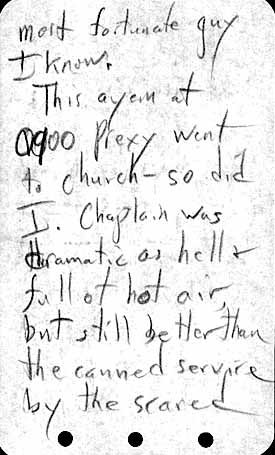 most fortunate guy
I know.
This ayem at
0900 Plexy went
to church - so did
I. Chaplain was
dramatic as hell &
full of hot air,
but still better than
the canned service
by the scared